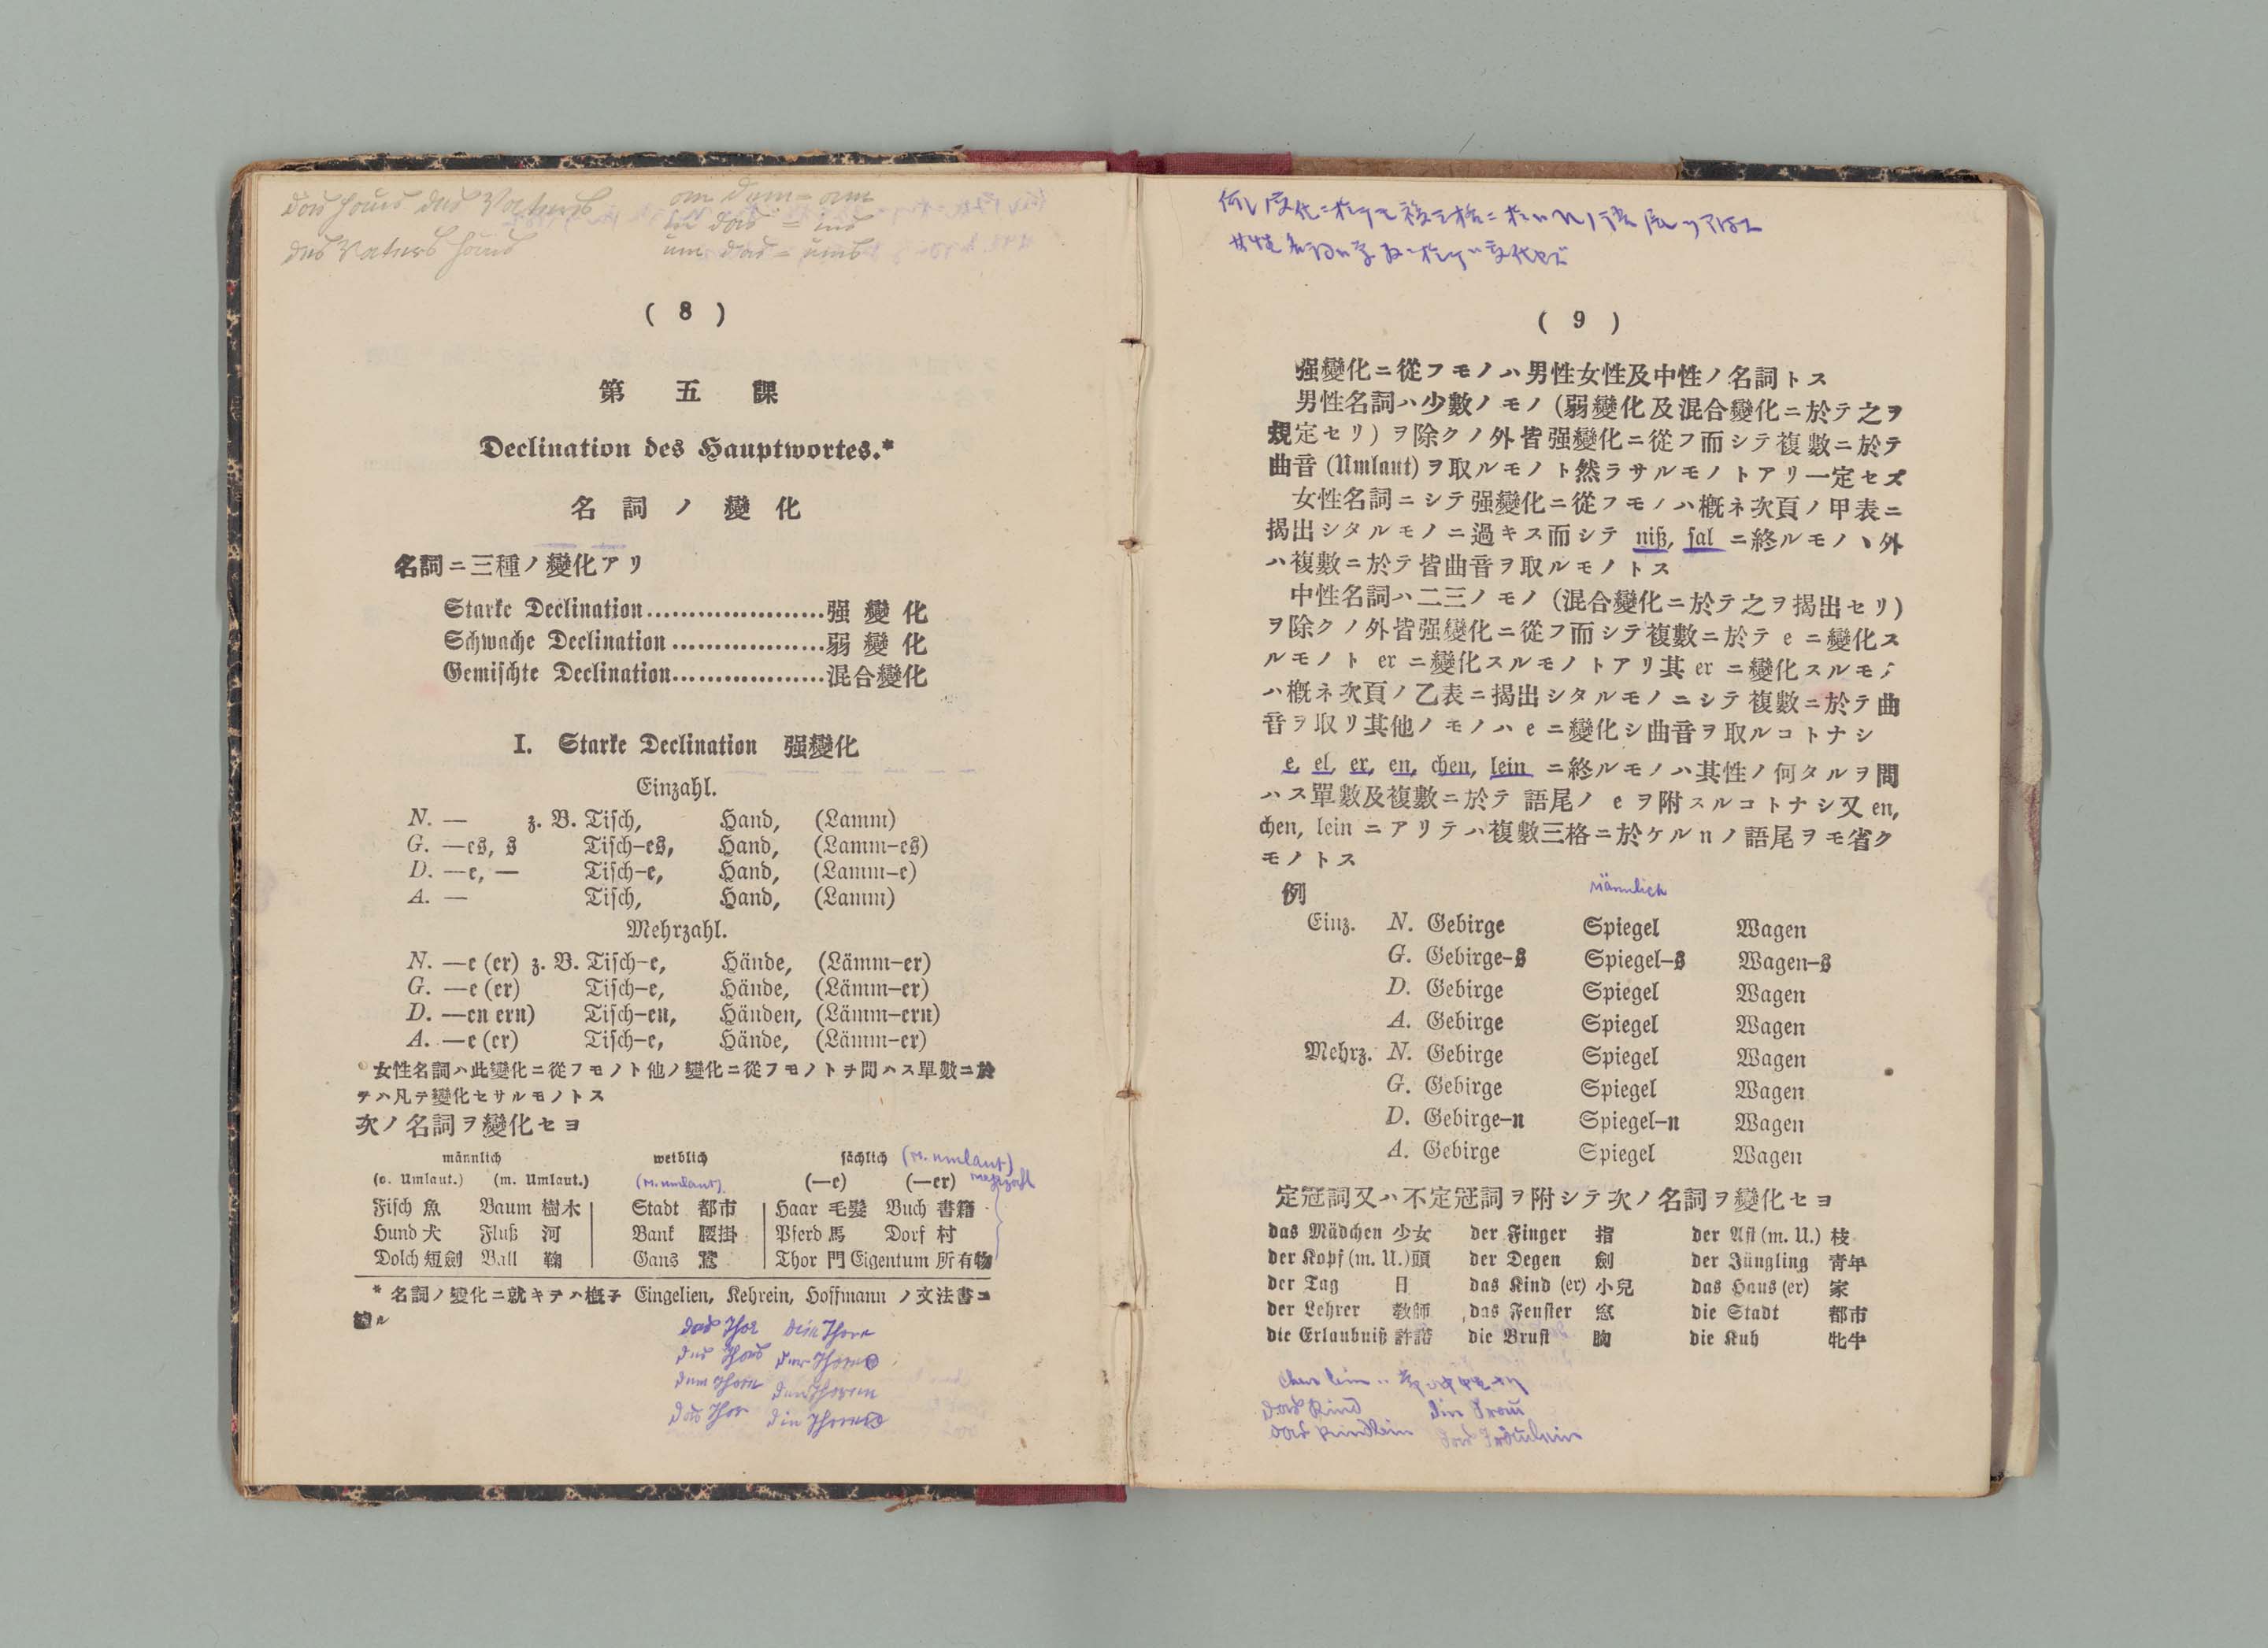 das Haus des Vaters
des Vaters Haus
an dem = am
in das = ins
um das = ums
( 8 )
第五課
Declination des Hauptwortes.*
名詞ノ變化
名詞ニ三種ノ變化アリ
Starke Declination.....................强變化
Schwache Declination..................弱變化
Gemischte Declination..................混合變化
I. Starke Declination 强變化
Einzahl.
N. — z. B. Tisch, Hand, (Lamm)
G. —es, s Tisch-es, Hand, (Lamm-es)
D. —e, — Tisch-e, Hand, (Lamm-e)
A. — Tisch, Hand, (Lamm)
Mehrzahl.
N. —e (er) z. B. Tisch-e, Hände, (Lämm-er)
G. —e (er) Tisch-e, Hände, (Lämm-er)
D. —en ern) Tisch-en, Händen, (Lämm-ern)
A. —e (er) Tisch-e, Hände, (Lämm-er)
女性名詞ハ此變化ニ從フモノト他ノ變化ニ從フモノトヲ問ハス單數ニ於
テハ凡テ變化セサルモノトス
次ノ名詞ヲ變化セヨ
männlich weiblich sächlich (m. umlaut)
(o. Umlaut.) (m. Umlaut.) (m. umlaut) (—e) (—er) mehrzahl
Fisch 魚 Baum 樹木 Stadt 都市 Haar 毛髮 Buch 書籍
Hund 犬 Fluß 河 Bank 腰掛 Pferd 馬 Dorf 村
Dolch 短劍 Ball 鞠 Gans 鵞 Thor 門 Eigentum 所有物
* 名詞ノ變化ニ就キテハ Eingelien, Kehrein, Hoffmann ノ文法書ニ
das Thor die Thore
des Thors der Thore
dem Thore den Thoren
das Thor die Thore
( 9 )
强變化ニ從フモノハ男性女性及中性ノ名詞トス
男性名詞ハ少數ノモノ (弱變化及混合變化ニ於テ之ヲ
規定セリ) ヲ除クノ外皆强變化ニ從フ而シテ複數ニ於テ
曲音 (Umlaut) ヲ取ルモノト然ラサルモノトアリ一定セズ
女性名詞ニシテ强變化ニ從フモノハ槪ネ次頁ノ甲表ニ
揭出シタルモノニ過キス而シテ niß, sal ニ終ルモノヽ外
ハ複數ニ於テ皆曲音ヲ取ルモノトス
中性名詞ハ二三ノモノ (混合變化ニ於テ之ヲ揭出セリ)
ヲ除クノ外皆强變化ニ從フ而シテ複數ニ於テ e ニ變化ス
ルモノト er ニ變化スルモノトアリ其 er ニ變化スルモノ
ハ槪ネ次頁ノ乙表ニ揭出シタルモノニシテ複數ニ於テ曲
音ヲ取リ其他ノモノハ e ニ變化シ曲音ヲ取ルコトナシ
e, el, er, en, chen, lein ニ終ルモノハ其性ノ何タルヲ問
ハス單數及複數ニ於テ語尾ノ e ヲ附スルコトナシ又 en,
chen, lein ニアリテハ複數三格ニ於ケル n ノ語尾ヲモ省ク
モノトス
例 männlich
Einz. N. Gebirge Spiegel Wagen
G. Gebirge-s Spiegel-s Wagen-s
D. Gebirge Spiegel Wagen
A. Gebirge Spiegel Wagen
Mehrz. N. Gebirge Spiegel Wagen
G. Gebirge Spiegel Wagen
D. Gebirge-n Spiegel-n Wagen
A. Gebirge Spiegel Wagen
定冠詞又ハ不定冠詞ヲ附シテ次ノ名詞ヲ變化セヨ
das Mädchen 少女 der Finger 指 der Ast (m. U.) 枝
der Kopf (m. U.) 頭 der Degen 劍 der Jüngling 青年
der Tag 日 das Kind (er) 小兒 das Haus (er) 家
der Lehrer 敎師 das Fenster 窓 die Stadt 都市
die Erlaubniß 許諾 die Brust 胸 die Kuh 牝牛
chen lein
das Kind die Frau
das Kindlein das Fräulein